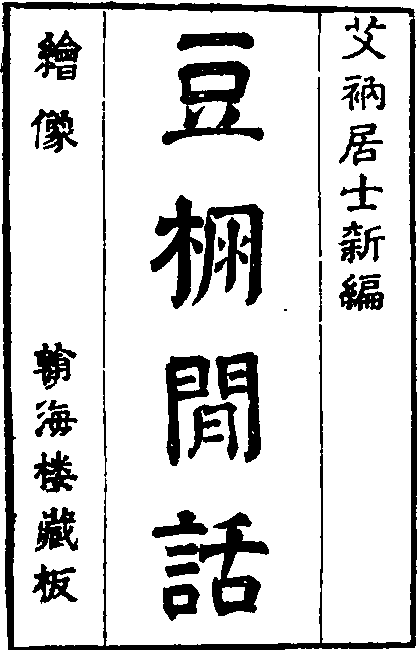 艾衲居士新編
豆棚閒話
繪像
翰海楼藏板